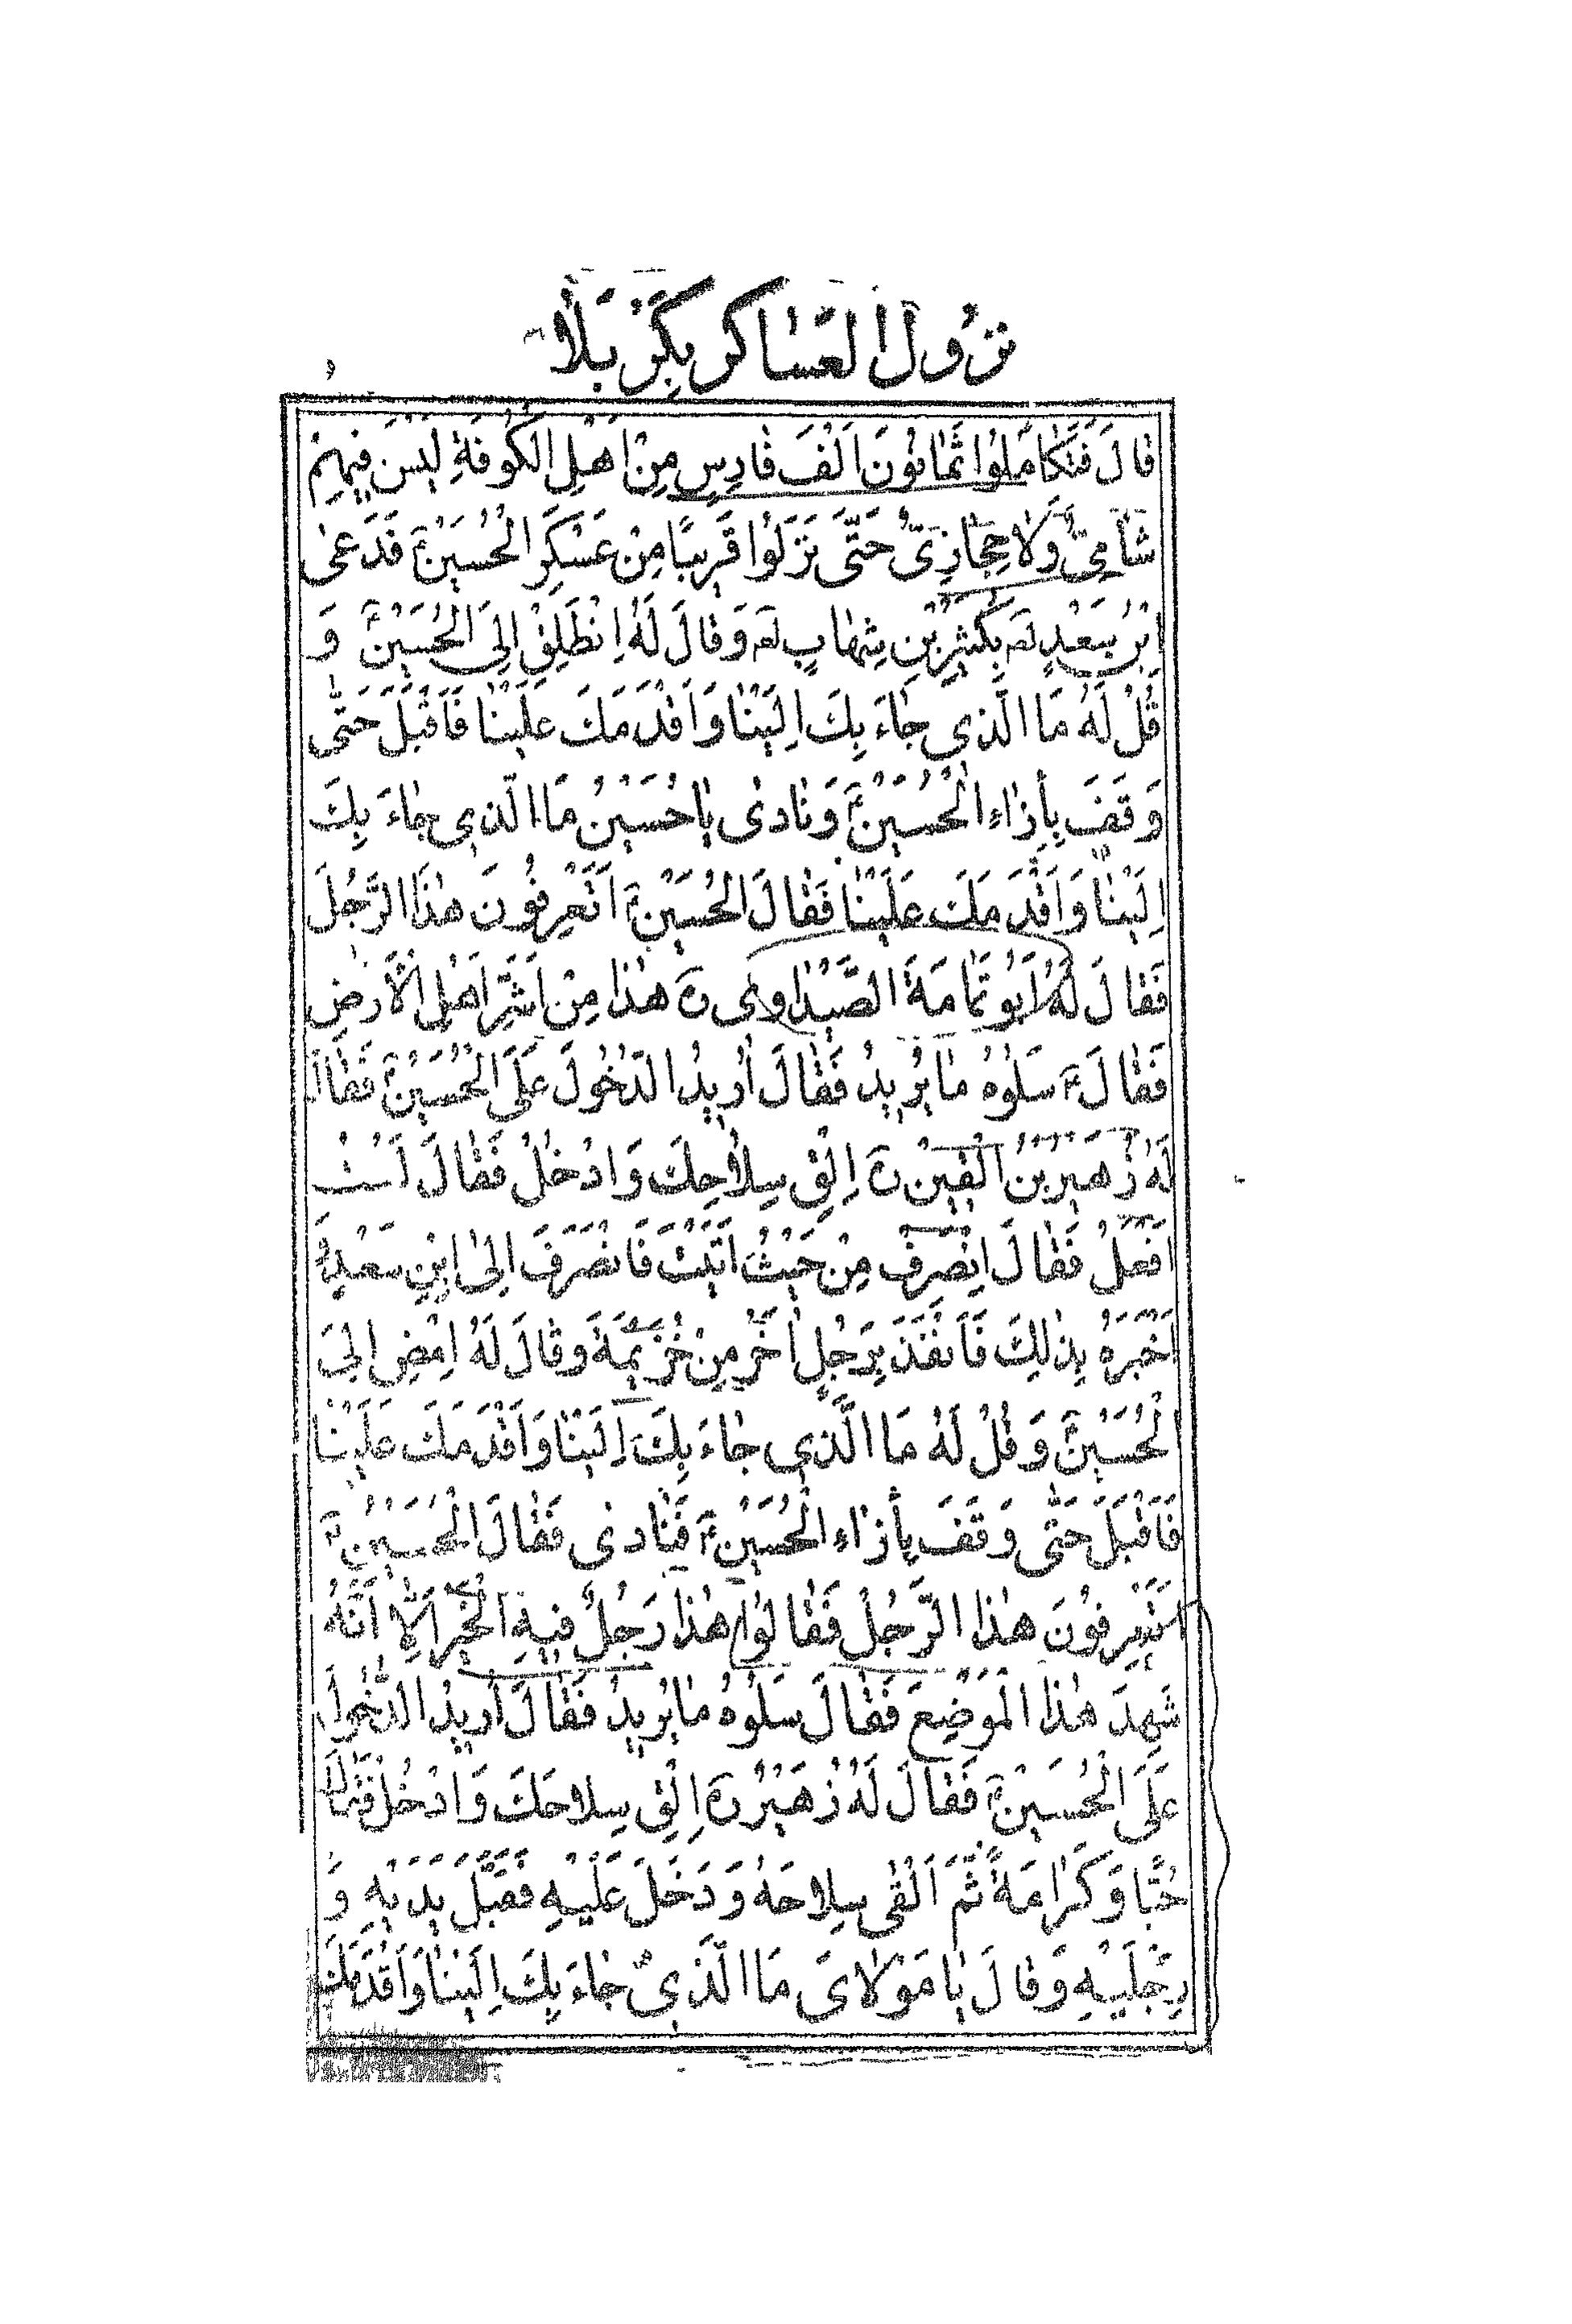 نُزُولُ الْعَسَاكِرِ بِكَرْبَلَا
قَالَ فَتَكَامَلُوا ثَمَانُونَ اَلْفَ فَارِسٍ مِنْ اَهْلِ الْكُوفَةِ لَيْسَ فِيهِمْ
شَامِىٌّ وَلَا حِجَازِىٌّ حَتَّى نَزَلُوا قَرِيبًا مِنْ عَسْكَرِ الْحُسَيْنِ ع فَدَعٰى
ابْنُ سَعْدٍ لعه بِكَثِيرِ بْنِ شِهَابٍ لعه وَقَالَ لَهُ اِنْطَلِقْ اِلَى الْحُسَيْنِ ع وَ
قُلْ لَهُ مَا الَّذِي جَاءَ بِكَ اِلَيْنَا وَاَقْدَمَكَ عَلَيْنَا فَاَقْبَلَ حَتّٰى
وَقَفَ بِأَزَاءِ الْحُسَيْنِ ع وَنَادٰى يَا حُسَيْنُ مَا الَّذِي جَاءَ بِكَ
اِلَيْنَا وَاَقْدَمَكَ عَلَيْنَا فَقَالَ الْحُسَيْنُ ع اَتَعْرِفُونَ هٰذَا الرَّجُلَ
فَقَالَ لَهُ اَبُو ثَمَامَةَ الصَّيْدَاوِى ره هٰذَا مِنْ اَشَرِّ اَهْلِ الْأَرْضِ
فَقَالَ ع سَلُوهُ مَا يُرِيدُ فَقَالَ اُرِيدُ الدُّخُولَ عَلَى الْحُسَيْنِ ع فَقَالَ
لَهُ زُهَيْرُ بْنُ الْقَيْنِ ره اِلْقِ سِلَاحِكَ وَادْخُلْ فَقَالَ لَسْتُ
اَفْعَلُ فَقَالَ اِنْصَرِفْ مِنْ حَيْثُ اَتَيْتَ فَانْصَرَفَ اِلٰى ابْنِ سَعْدٍ وَ
اَخْبَرَهُ بِذٰلِكَ فَاَنْفَذَ بِرَجُلٍ اٰخَرَ مِنْ خُزَيْمَةَ وَقَالَ لَهُ اِمْضِ اِلَى
الْحُسَيْنِ ع وَقُلْ لَهُ مَا الَّذِي جَاءَ بِكَ اِلَيْنَا وَاَقْدَمَكَ عَلَيْنَا
فَاَقْبَلَ حَتّٰى وَقَفَ بِأَزَاءِ الْحُسَيْنِ ع فَنَادٰى فَقَالَ الْحُسَيْنُ ع
اَتَعْرِفُونَ هٰذَا الرَّجُلَ فَقَالُوا هٰذَا رَجُلٌ فِيهِ الْخَيْرُ اِلَّا اَنَّهُ
شَهِدَ هٰذَا الْمَوْضِعَ فَقَالَ سَلُوهُ مَا يُرِيدُ فَقَالَ اُرِيدُ الدُّخُولَ
عَلَى الْحُسَيْنِ ع فَقَالَ لَهُ زُهَيْرٌ ره اِلْقِ سِلَاحَكَ وَادْخُلْ فَقَالَ
حُبًّا وَكَرَامَةً ثُمَّ اَلْقٰى سِلَاحَهُ وَدَخَلَ عَلَيْهِ فَقَبَّلَ يَدَيْهِ وَ
رِجْلَيْهِ وَقَالَ يَا مَوْلَاىَ مَا الَّذِى جَاءَ بِكَ اِلَيْنَا وَاَقْدَمَكَ